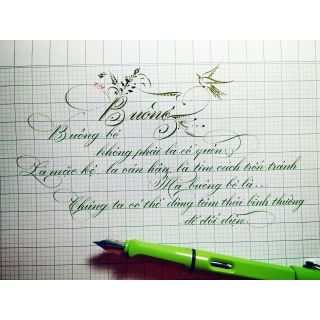 Buông
Buông bỏ
không phải là cố quên,
Là mặc kệ, là oán hận, là tìm cách trốn tránh
Mà buông bỏ là...
Chúng ta có thể dùng tâm thái bình thường
để đối diện.